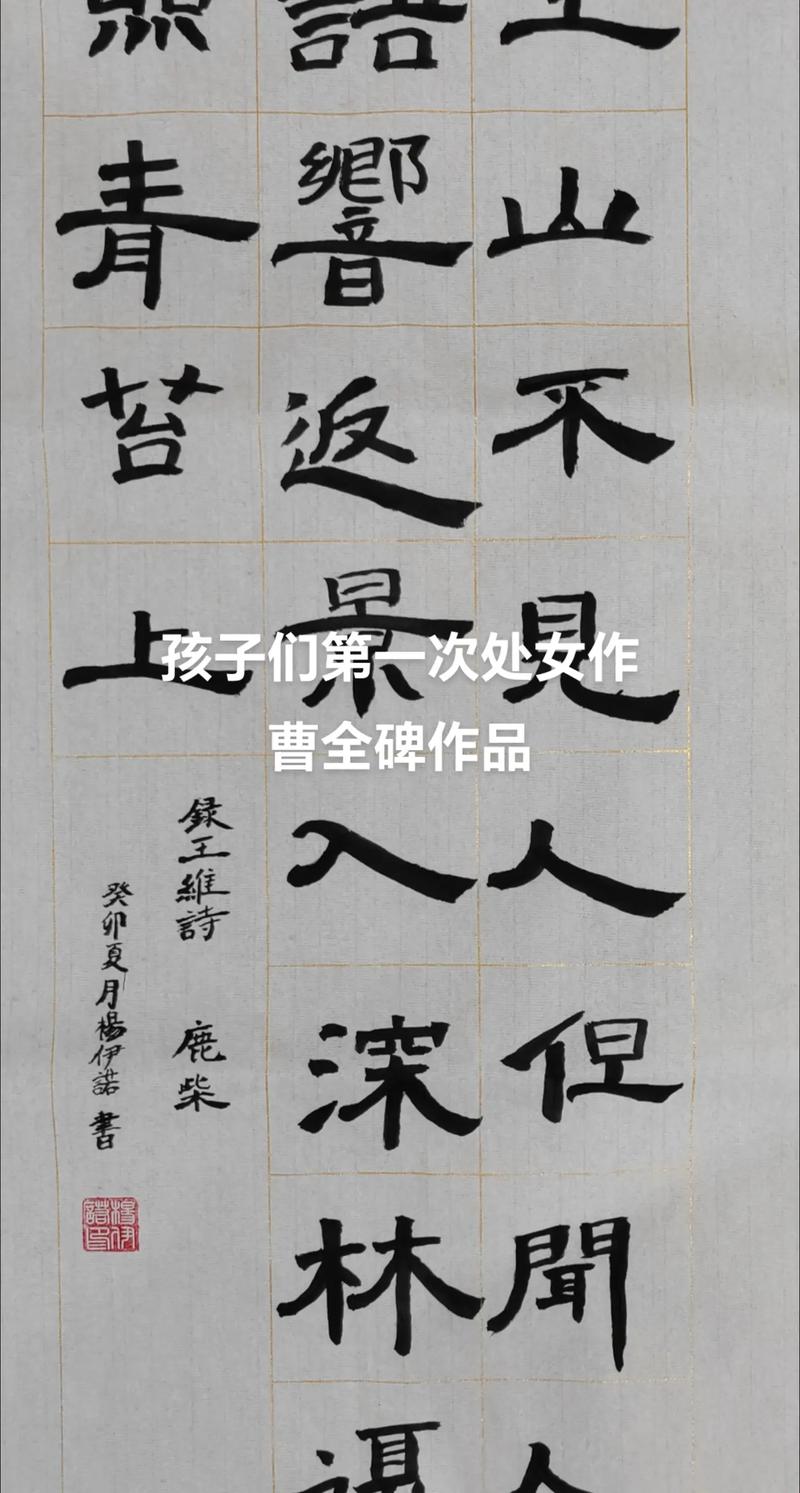 山不見人但聞人
語響返景入深林
青苔上
録王維詩 鹿柴
癸卯夏月楊伊諾書
楊伊諾印
孩子们第一次处女作
曹全碑作品